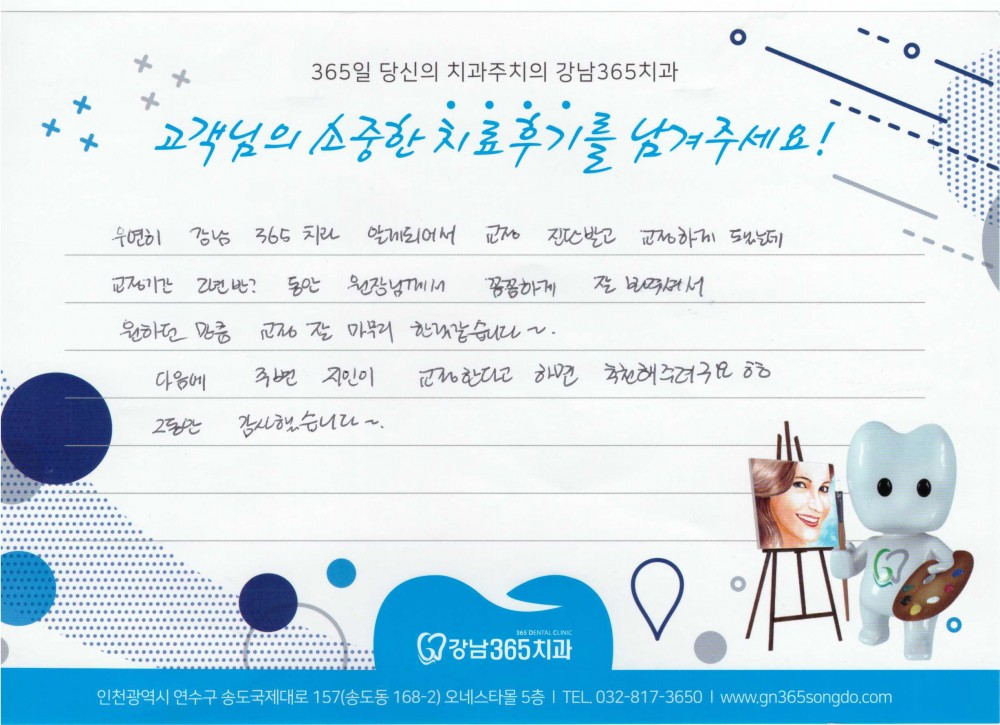 365일 당신의 치과주치의 강남365치과
고객님의 소중한 치료후기를 남겨주세요!
우연히 강남 365 치과 알게되어서 교정 진단받고 교정하게 됐는데
교정기간 2년반? 동안 원장님께서 꼼꼼하게 잘 봐주셔서
원하던 만큼 교정 잘 마무리 한것같습니다~.
다음에 주변 지인이 교정한다고 하면 추천해주려구요 ㅎㅎ
그동안 감사했습니다~.
365 DENTAL CLINIC
강남365치과
인천광역시 연수구 송도국제대로 157(송도동 168-2) 오네스타몰 5층 | TEL. 032-817-3650 | www.gn365songdo.com